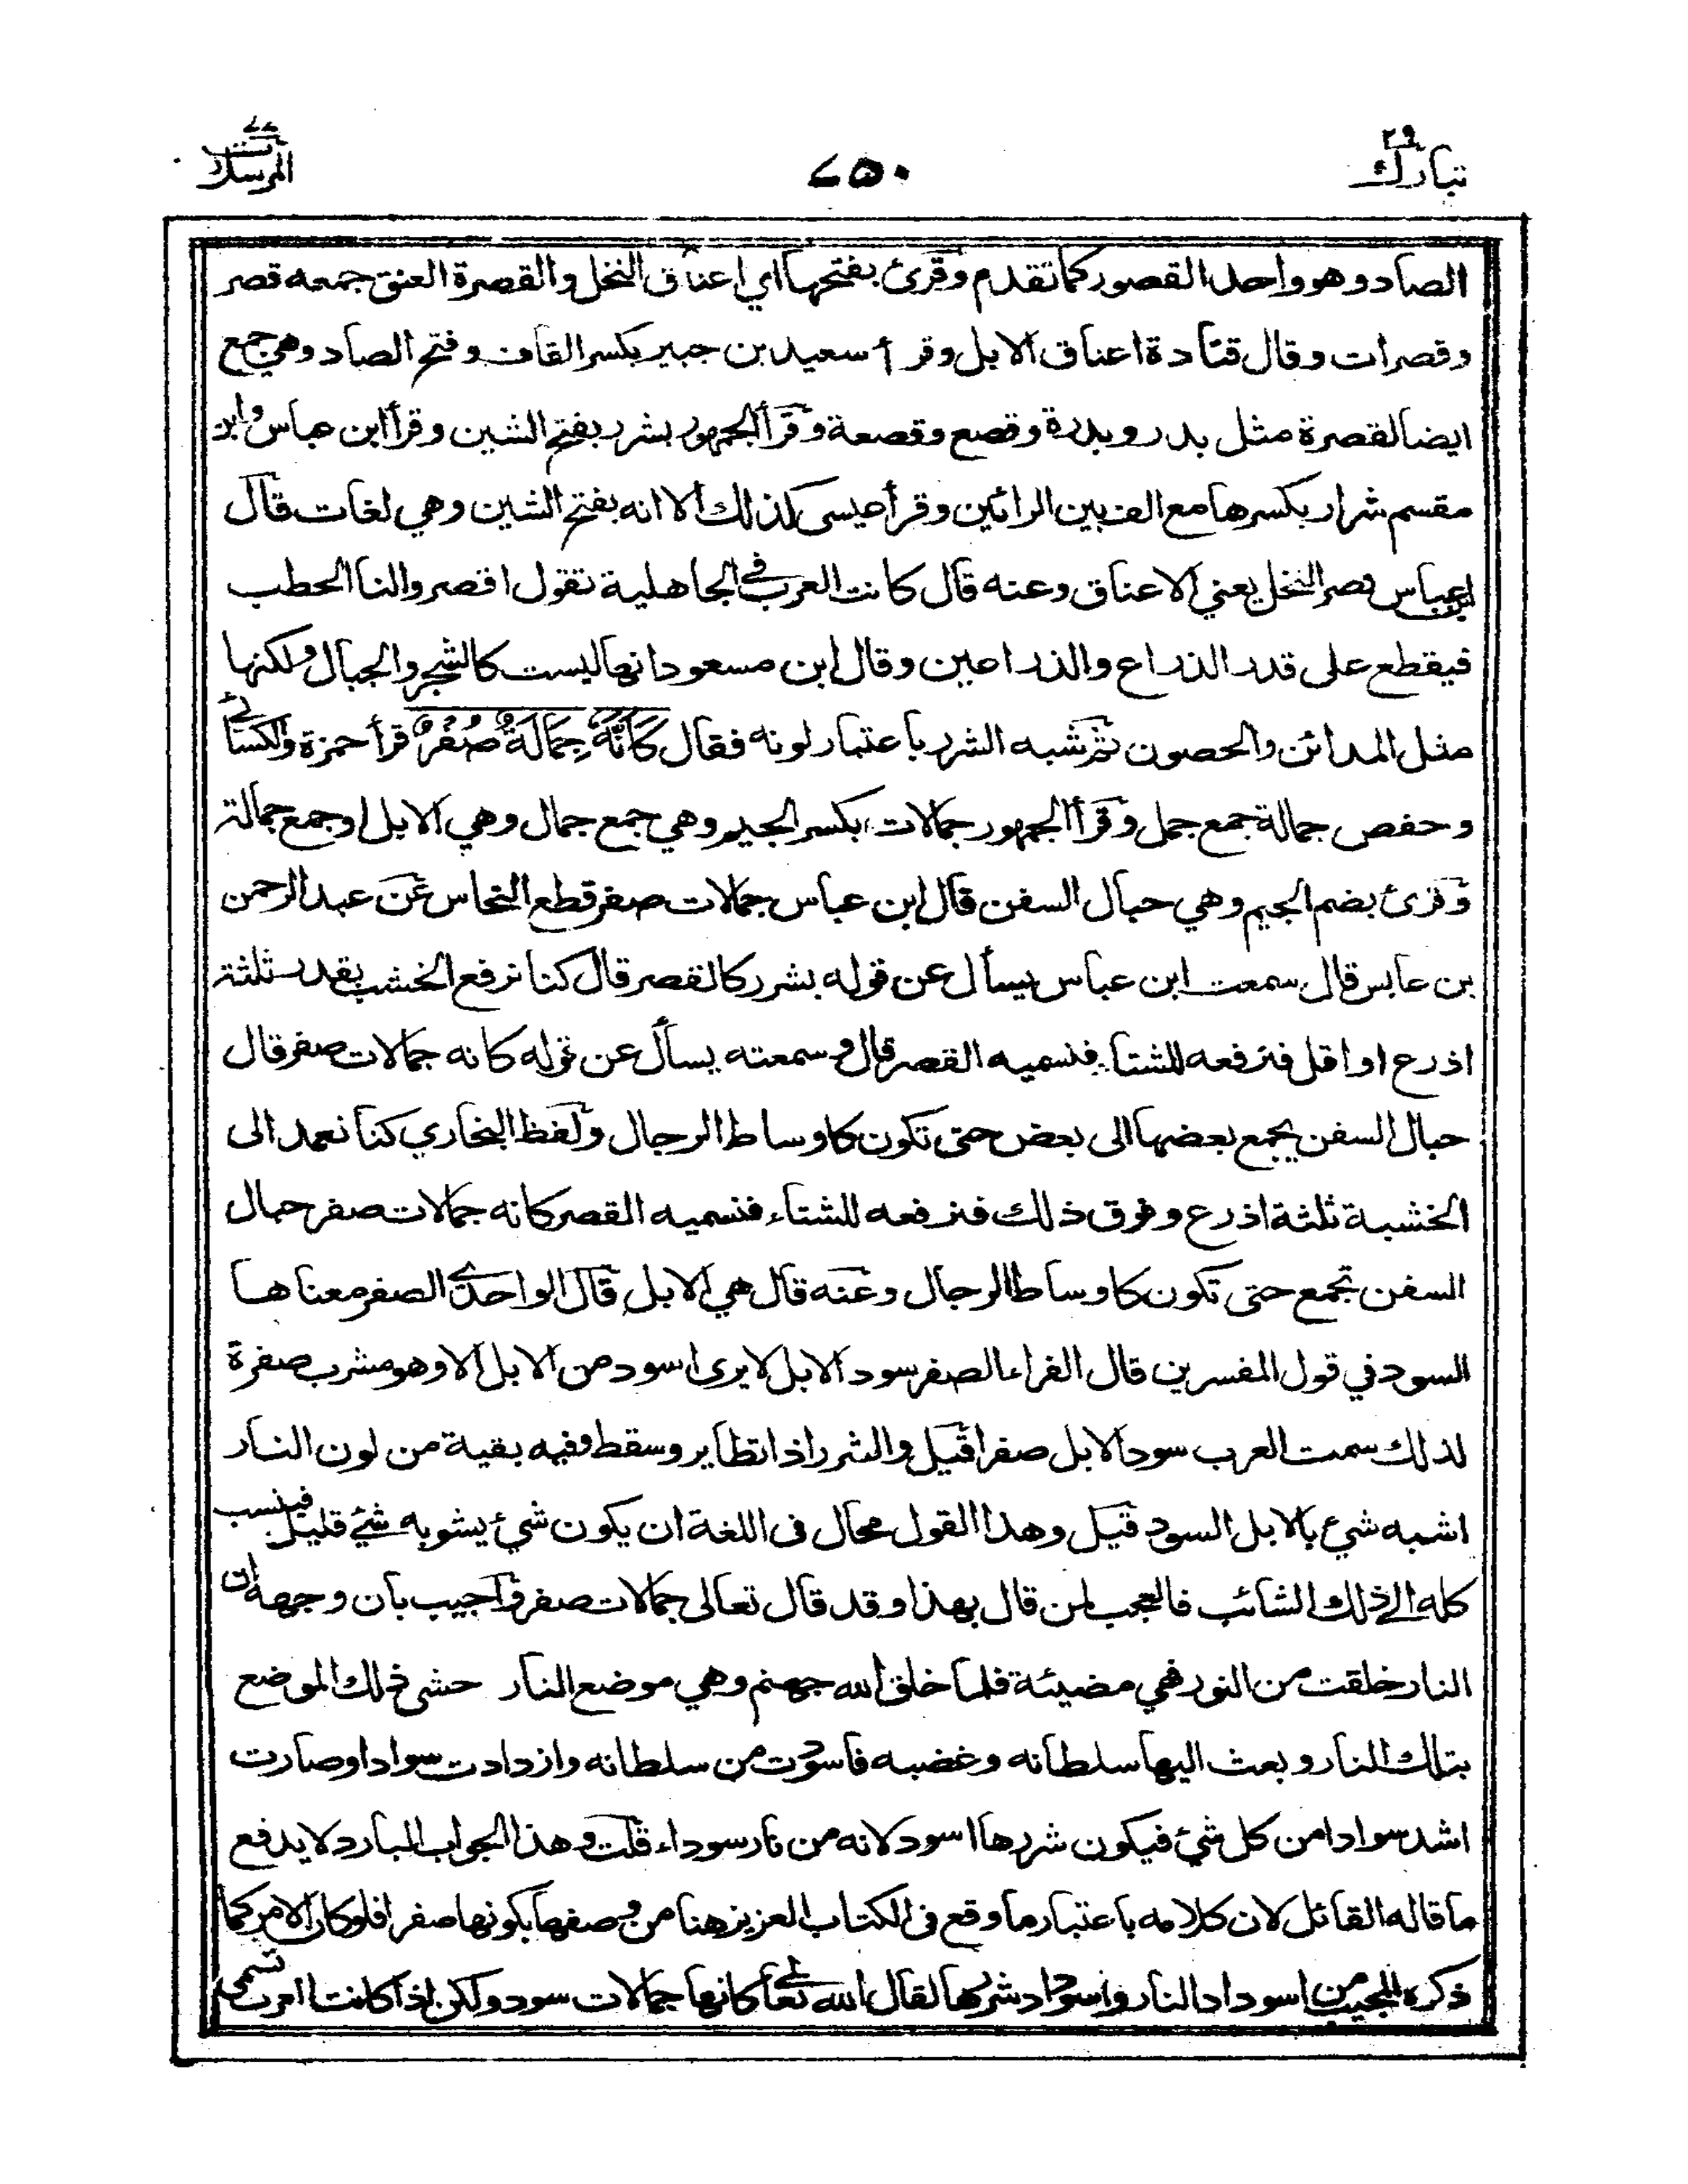 تبارك ٢٩
٧٥٠
المرسلات ٧٧
الصاد وهو واحد القصور كما تقدم وقرئ بفتحها اي اعناق النخل والقصرة العنق جمعه قصر
وقصرات وقال قتادة اعناق الابل وقرأ سعيد بن جبير بكسر القاف وفتح الصاد وهي جمع
ايضا لقصرة مثل بدر وبدرة وقصع وقصعة وقرأ الجمهور بشرر بفتح الشين وقرأ ابن عباس وابن
مقسم شرار بكسرها مع الف بين الرائين وقرأ عيسى كذلك الا انه بفتح الشين وهي لغات قال
ابن عباس قصر النخل يعني الاعناق وعنه قال كانت العرب في الجاهلية تقول اقصروا لنا الحطب
فيقطع على قدر الذراع والذراعين وقال ابن مسعود انها ليست كالشجر والجبال ولكنها
مثل المدائن والحصون ثم شبه الشرر باعتبار لونه فقال كَأَنَّهُ جِمَالَةٌ صُفْرٌ قرأ حمزة والكسائي
وحفص جمالة جمع جمل وقرأ الجمهور جمالات بكسر الجيم وهي جمع جمال وهي الابل او جمع جمالة
وقرئ بضم الجيم وهي حبال السفن قال ابن عباس جمالات صفر قطع النحاس عن عبد الرحمن
بن عابس قال سمعت ابن عباس يسأل عن قوله بشرر كالقصر قال كنا نرفع الخشب بقدر ثلثة
اذرع او اقل فنرفعه للشتاء فنسميه القصر قال وسمعته يسأل عن قوله كانه جمالات صفر قال
حبال السفن يجمع بعضها الى بعض حتى تكون كاوساط الرجال ولفظ البخاري كنا نعمد الى
الخشبة ثلثة اذرع وفوق ذلك فنرفعه للشتاء فنسميه القصر كانه جمالات صفر حبال
السفن تجمع حتى تكون كاوساط الرجال وعنه قال هي الابل قال الواحدي الصفر معناها
السود في قول المفسرين قال الفراء الصفر سود الابل لا يرى اسود من الابل الا وهو مشرب صفرة
لذلك سمت العرب سود الابل صفرا قيل والشرر اذا تطاير وسقط وفيه بقية من لون النار
اشبه شيء بالابل السود قيل وهذا القول محال في اللغة ان يكون شيئ يشوبه شيئ قليل فينسب
كله الى ذلك الشائب فالعجب لمن قال بهذا وقد قال تعالى جمالات صفر واجيب بان وجهه ان
النار خلقت من النور فهي مضيئة فلما خلق الله جهنم وهي موضع النار حشى ذلك الموضع
بتلك النار وبعث اليها سلطانه وغضبه فاسودت من سلطانه وازدادت سوادا وصارت
اشد سوادا من كل شيئ فيكون شررها اسود لانه من نار سوداء قلت وهذا الجواب البارد لا يدفع
ما قاله القائل لان كلامه باعتبار ما وقع في الكتاب العزيز هنا من وصفها بكونها صفرا فلو كان الامر كما
ذكره المجيب من اسوداد النار واسوداد شررها لقال الله تعالى كانها جمالات سود ولكن اذا كانت العرب تسمى